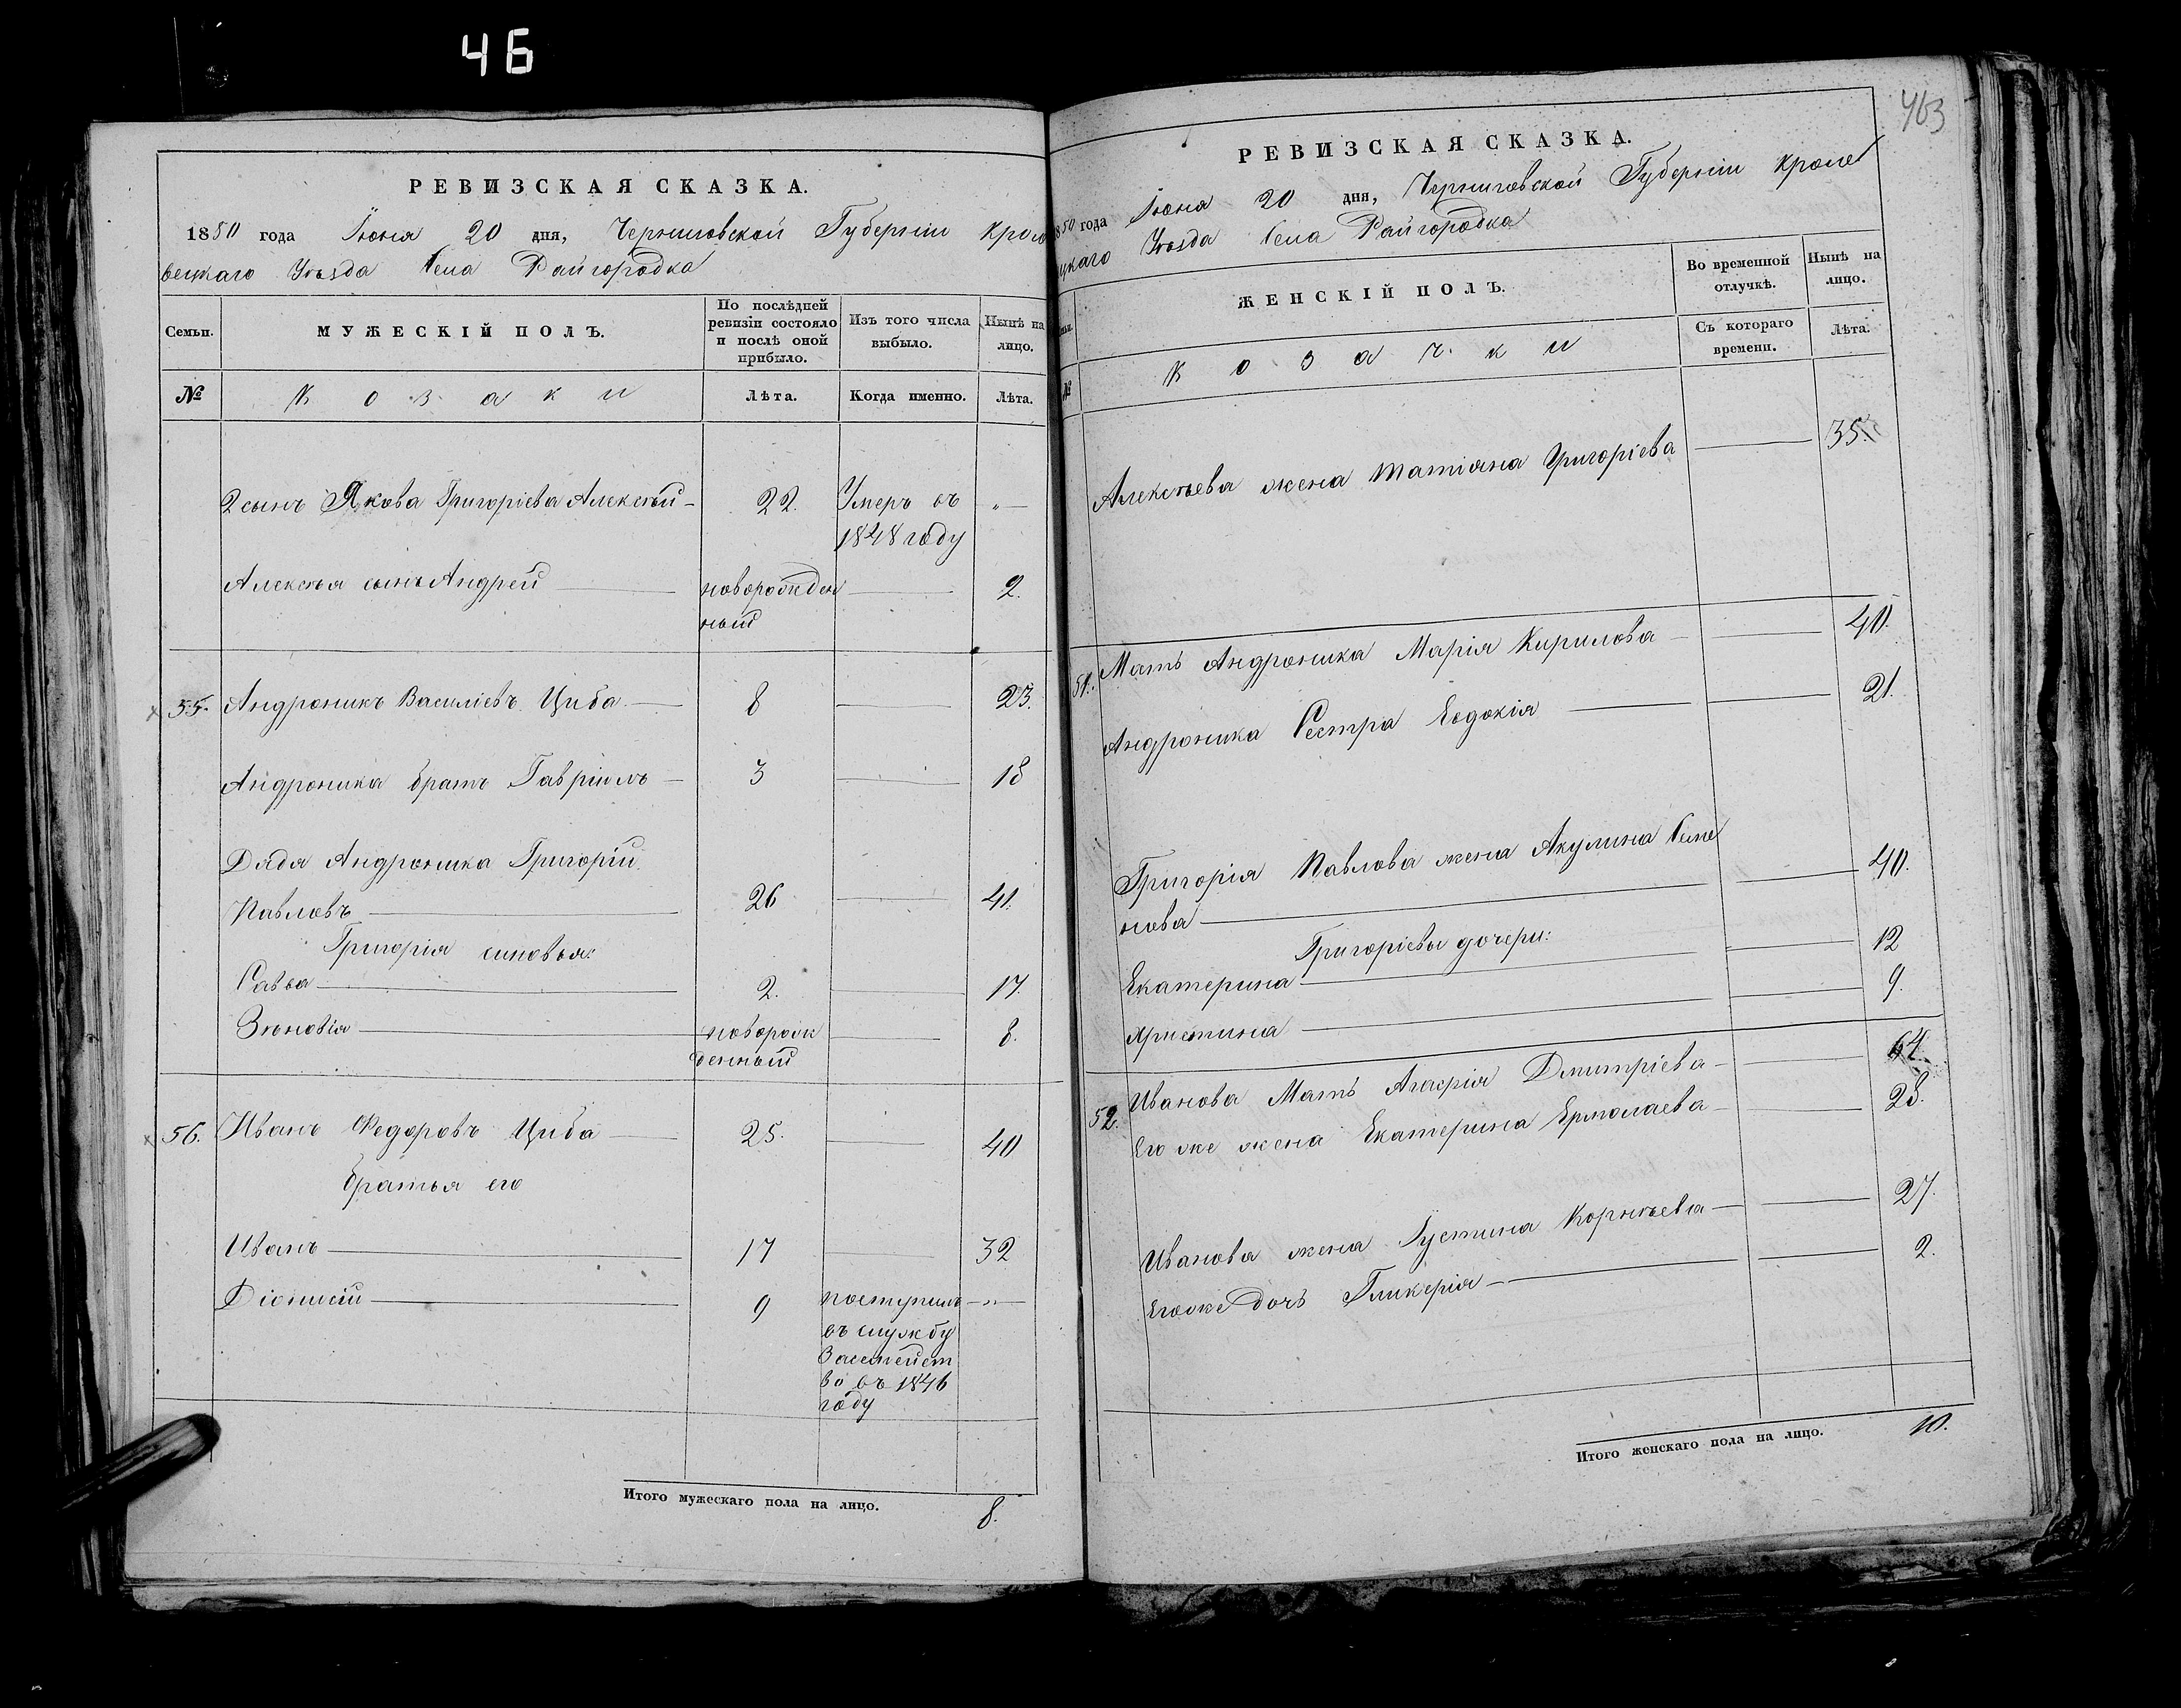 46
РЕВИЗСКАЯ СКАЗКА.
1850 года Іюня 20 дня, Черниговской Губерніи Кроле
вецкаго Уѣзда Села Райгородка
Семьи.
МУЖЕСКІЙ ПОЛЪ.
По послѣдней ревизіи состояло и послѣ оной прибыло.
Изъ того числа выбыло.
Нынѣ на лицо.
№
Козаки
Лѣта.
Когда именно.
Лѣта.
2 сынъ Якова Григоріева Алексѣй 22. Умеръ въ „
1848 году
Алексѣя сынъ Андрей новорожден 2.
ный
55. Андроникъ Василіевъ Циба 8 23.
Андроника братъ Гавріилъ 3 18
Дядя Андроника Григорій
Павловъ 26 41.
Григорія синовья:
Савва 2. 17.
Зѣновія новорож 8.
денный
56. Иванъ Федоровъ Циба 25. 40
Братья его
Иванъ 17 32
Діонисій 9 поступилъ „
въ службу
за семейст
во въ 1846
году
Итого мужескаго пола на лицо. 8.
463
РЕВИЗСКАЯ СКАЗКА.
1850 года Іюня 20 дня, Черниговской Губерніи Кроле
цкаго Уѣзда Села Райгородка
ЖЕНСКІЙ ПОЛЪ.
Во временной отлучкѣ.
Нынѣ на лицо.
№
Козачки
Съ котораго времени.
Лѣта.
Алексѣева жена Татіяна Григоріева 35.
51. Мать Андроника Марія Кирилова 40.
Андроника Сестра Евдокія 21.
Григорія Павлова жена Акулина Семе
нова 40.
Григоріевы дочери:
Екатерина 12
Христина 9.
52. Иванова Мать Агафія Дмитріева 64.
Его же жена Екатерина Ермолаева 28.
Иванова жена Іустина Корнѣева 27.
Его же дочь Гликерія 2.
Итого женскаго пола на лицо. 10.